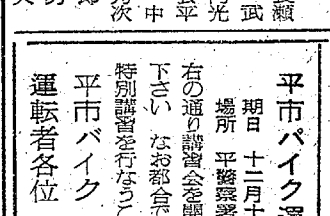 瀬
武
光
平
中
次
平市バイク運
期日 十二月十
場所 平警察署
右の通り講習会を開
下さい なお都合で
特別講習を行なうこ
平市バイク
運転者各位